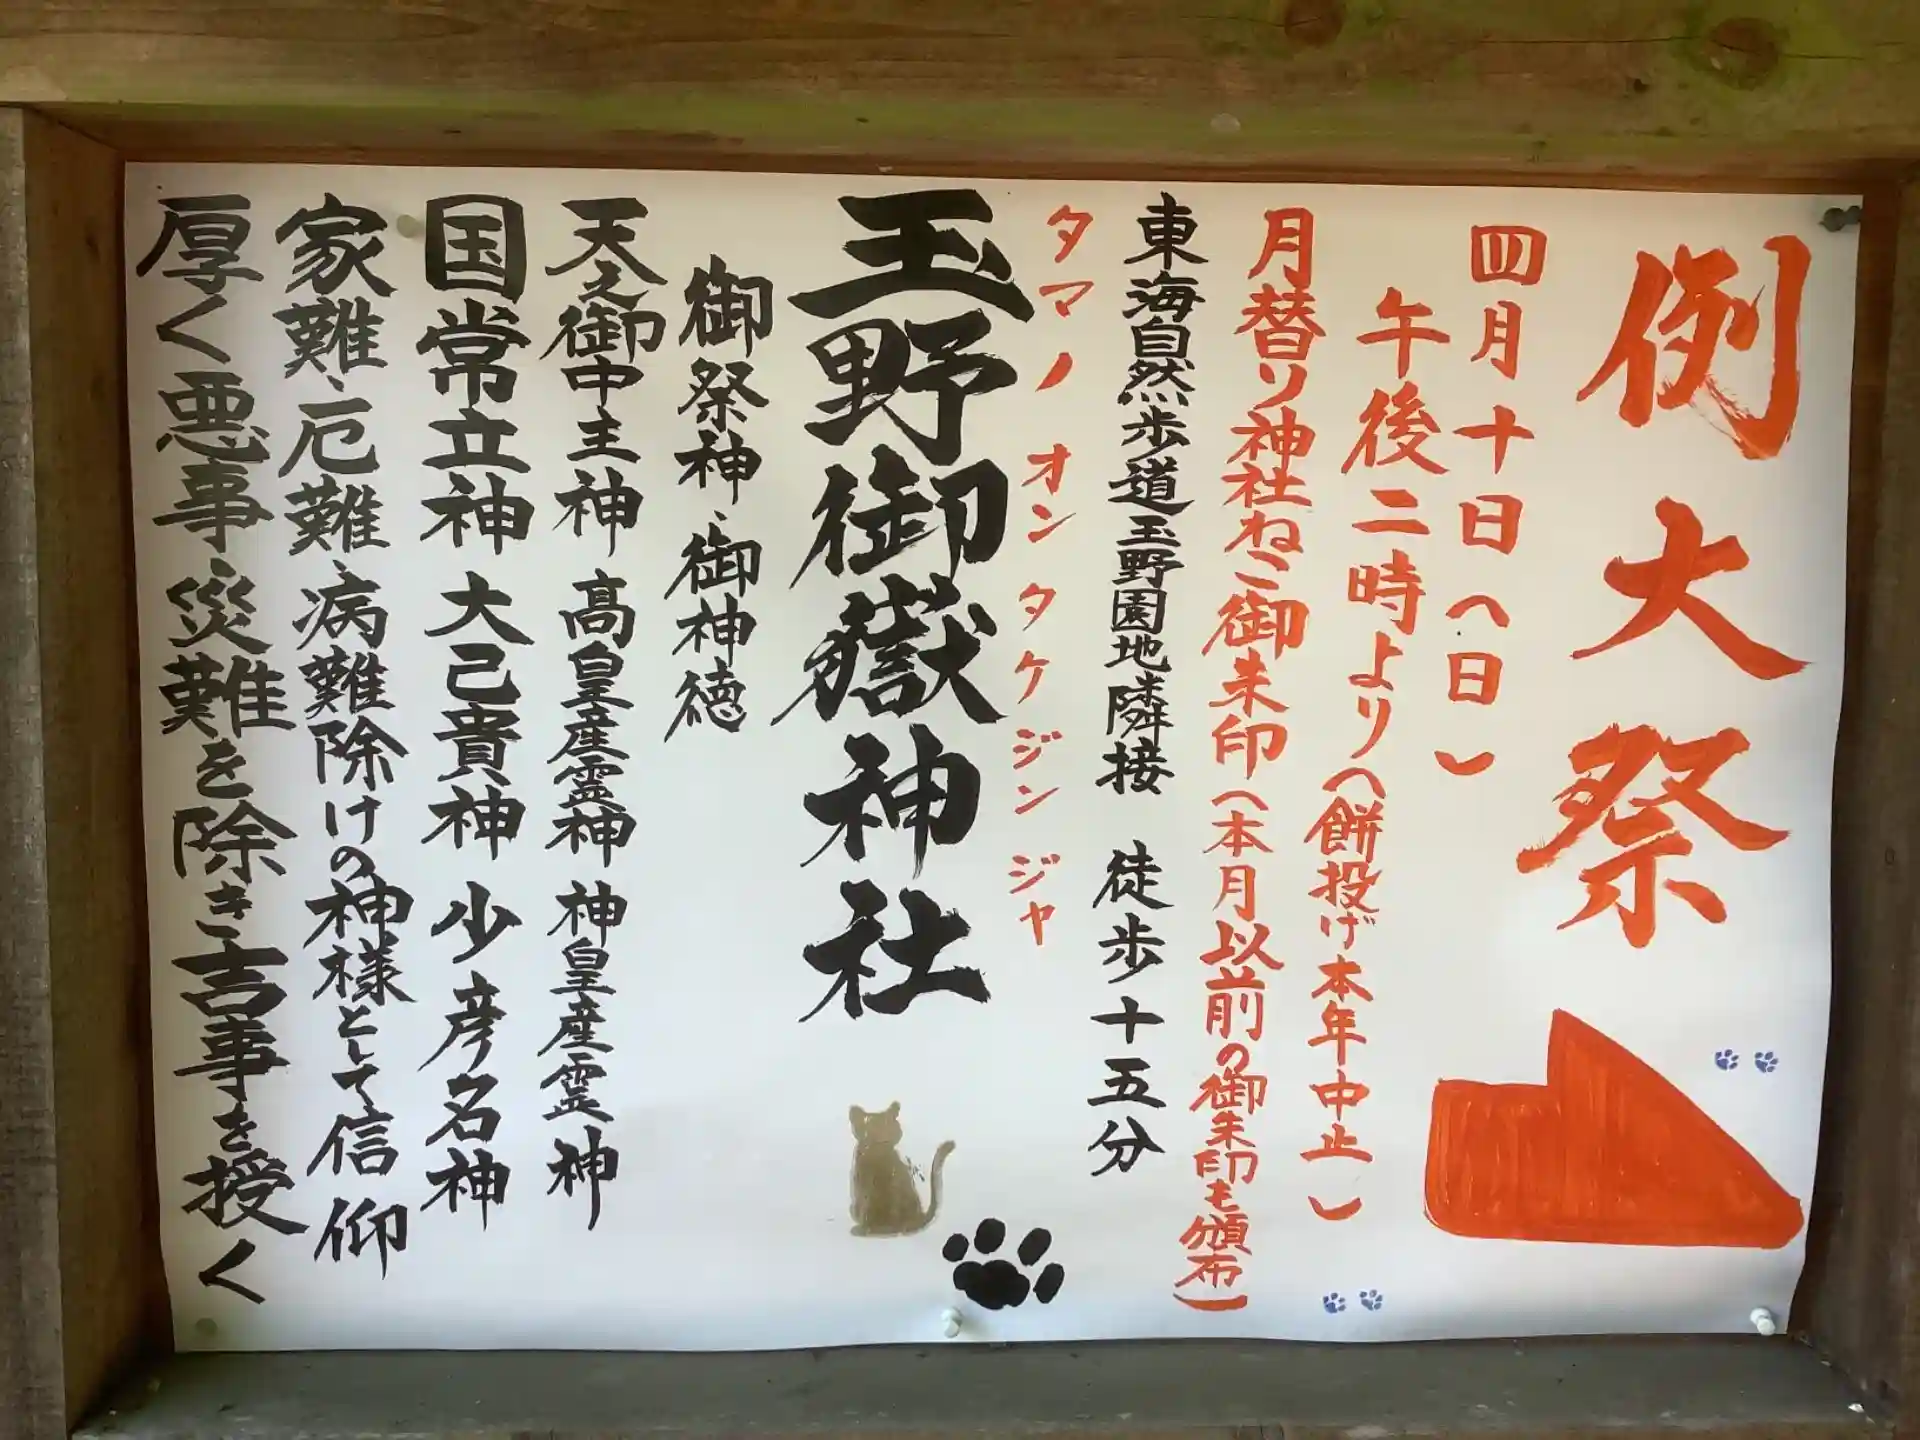 例大祭
四月十日(日)
午後二時より(餅投げ本年中止)
月替り神社ねこ御朱印(本月以前の御朱印も頒布)
東海自然歩道玉野園地隣接 徒歩十五分
タマノ オンタケジンジャ
玉野御嶽神社
御祭神、御神徳
天之御中主神 高皇産霊神 神皇産霊神
国常立神 大己貴神 少彦名神
家難、厄難、病難除けの神様として信仰
厚く悪事、災難を除き吉事を授く